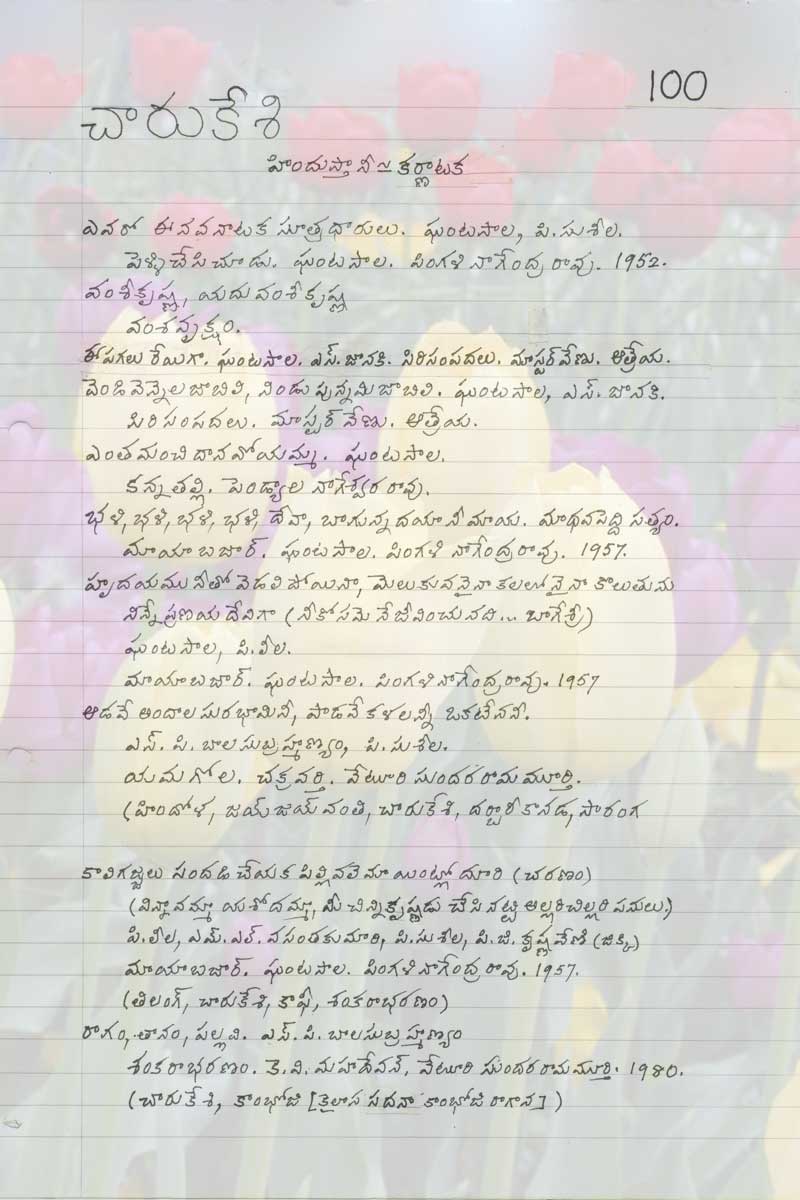 100
చారుకేశి
హిందుస్తానీ ~ కర్ణాటక
ఎవరో ఈ నవనాటక సూత్రధారులు. ఘంటసాల, పి.సుశీల.
పెళ్ళిచేసిచూడు. ఘంటసాల. పింగళి నాగేంద్రరావు. 1952.
వంశీకృష్ణ, యదు వంశీకృష్ణ
వంశవృక్షం.
ఈ పగలు రేయిగా. ఘంటసాల. ఎస్.జానకి. సిరిసంపదలు. మాస్టర్ వేణు. ఆత్రేయ.
వెండి వెన్నెల జాబిలి, నిండు పున్నమి జాబిలి. ఘంటసాల, ఎస్. జానకి.
సిరిసంపదలు. మాస్టర్ వేణు. ఆత్రేయ.
ఎంత మంచి దానవోయమ్మ. ఘంటసాల.
కన్నతల్లి. పెండ్యాల నాగేశ్వరరావు.
భళి, భళి, భళి, భళి, దేవా, బాగున్నదయా నీ మాయ. మాధవపెద్ది సత్యం.
మాయాబజార్. ఘంటసాల. పింగళి నాగేంద్రరావు. 1957.
హృదయము నీతో వెడలి పోయినా, మెలకువనైనా కలలోనైనా కొలుతును
నిన్నే ప్రణయ దేవిగా (నీకోసమె నేజీవించునది... బాగేశ్రీ)
ఘంటసాల, పి.లీల.
మాయాబజార్. ఘంటసాల. పింగళి నాగేంద్రరావు. 1957
ఆడవే అందాల సురభామినీ, పాడవే కళలన్నీ ఒకటేననీ.
ఎస్. పి. బాలసుబ్రహ్మణ్యం, పి.సుశీల.
యమగోల. చక్రవర్తి. వేటూరి సుందరరామమూర్తి.
(హిందోళ, జయ్ జయ్ వంతి, చారుకేశి, దర్బారీకానడ, సారంగ
కాలి గజ్జలు సందడి చేయక పిల్లివలె మా యింట్లో దూరి (చరణం)
(విన్నావమ్మా యశోదమ్మా, మీ చిన్నికృష్ణుడు చేసినట్టి అల్లరిచిల్లరి పనులు)
పి.లీల, ఎమ్.ఎల్. వసంతకుమారి, పి.సుశీల, పి.జి. కృష్ణవేణి (జిక్కి)
మాయాబజార్. ఘంటసాల. పింగళి నాగేంద్రరావు. 1957.
(తిలంగ్, చారుకేశి, కాఫీ, శంకరాభరణం)
రాగం, తానం, పల్లవి. ఎస్. పి. బాలసుబ్రహ్మణ్యం
శంకరాభరణం. కె.వి. మహదేవన్, వేటూరి సుందరరామమూర్తి. 1980.
(చారుకేశి, కాంభోజి [కైలాస సదనా కాంభోజి రాగాన])